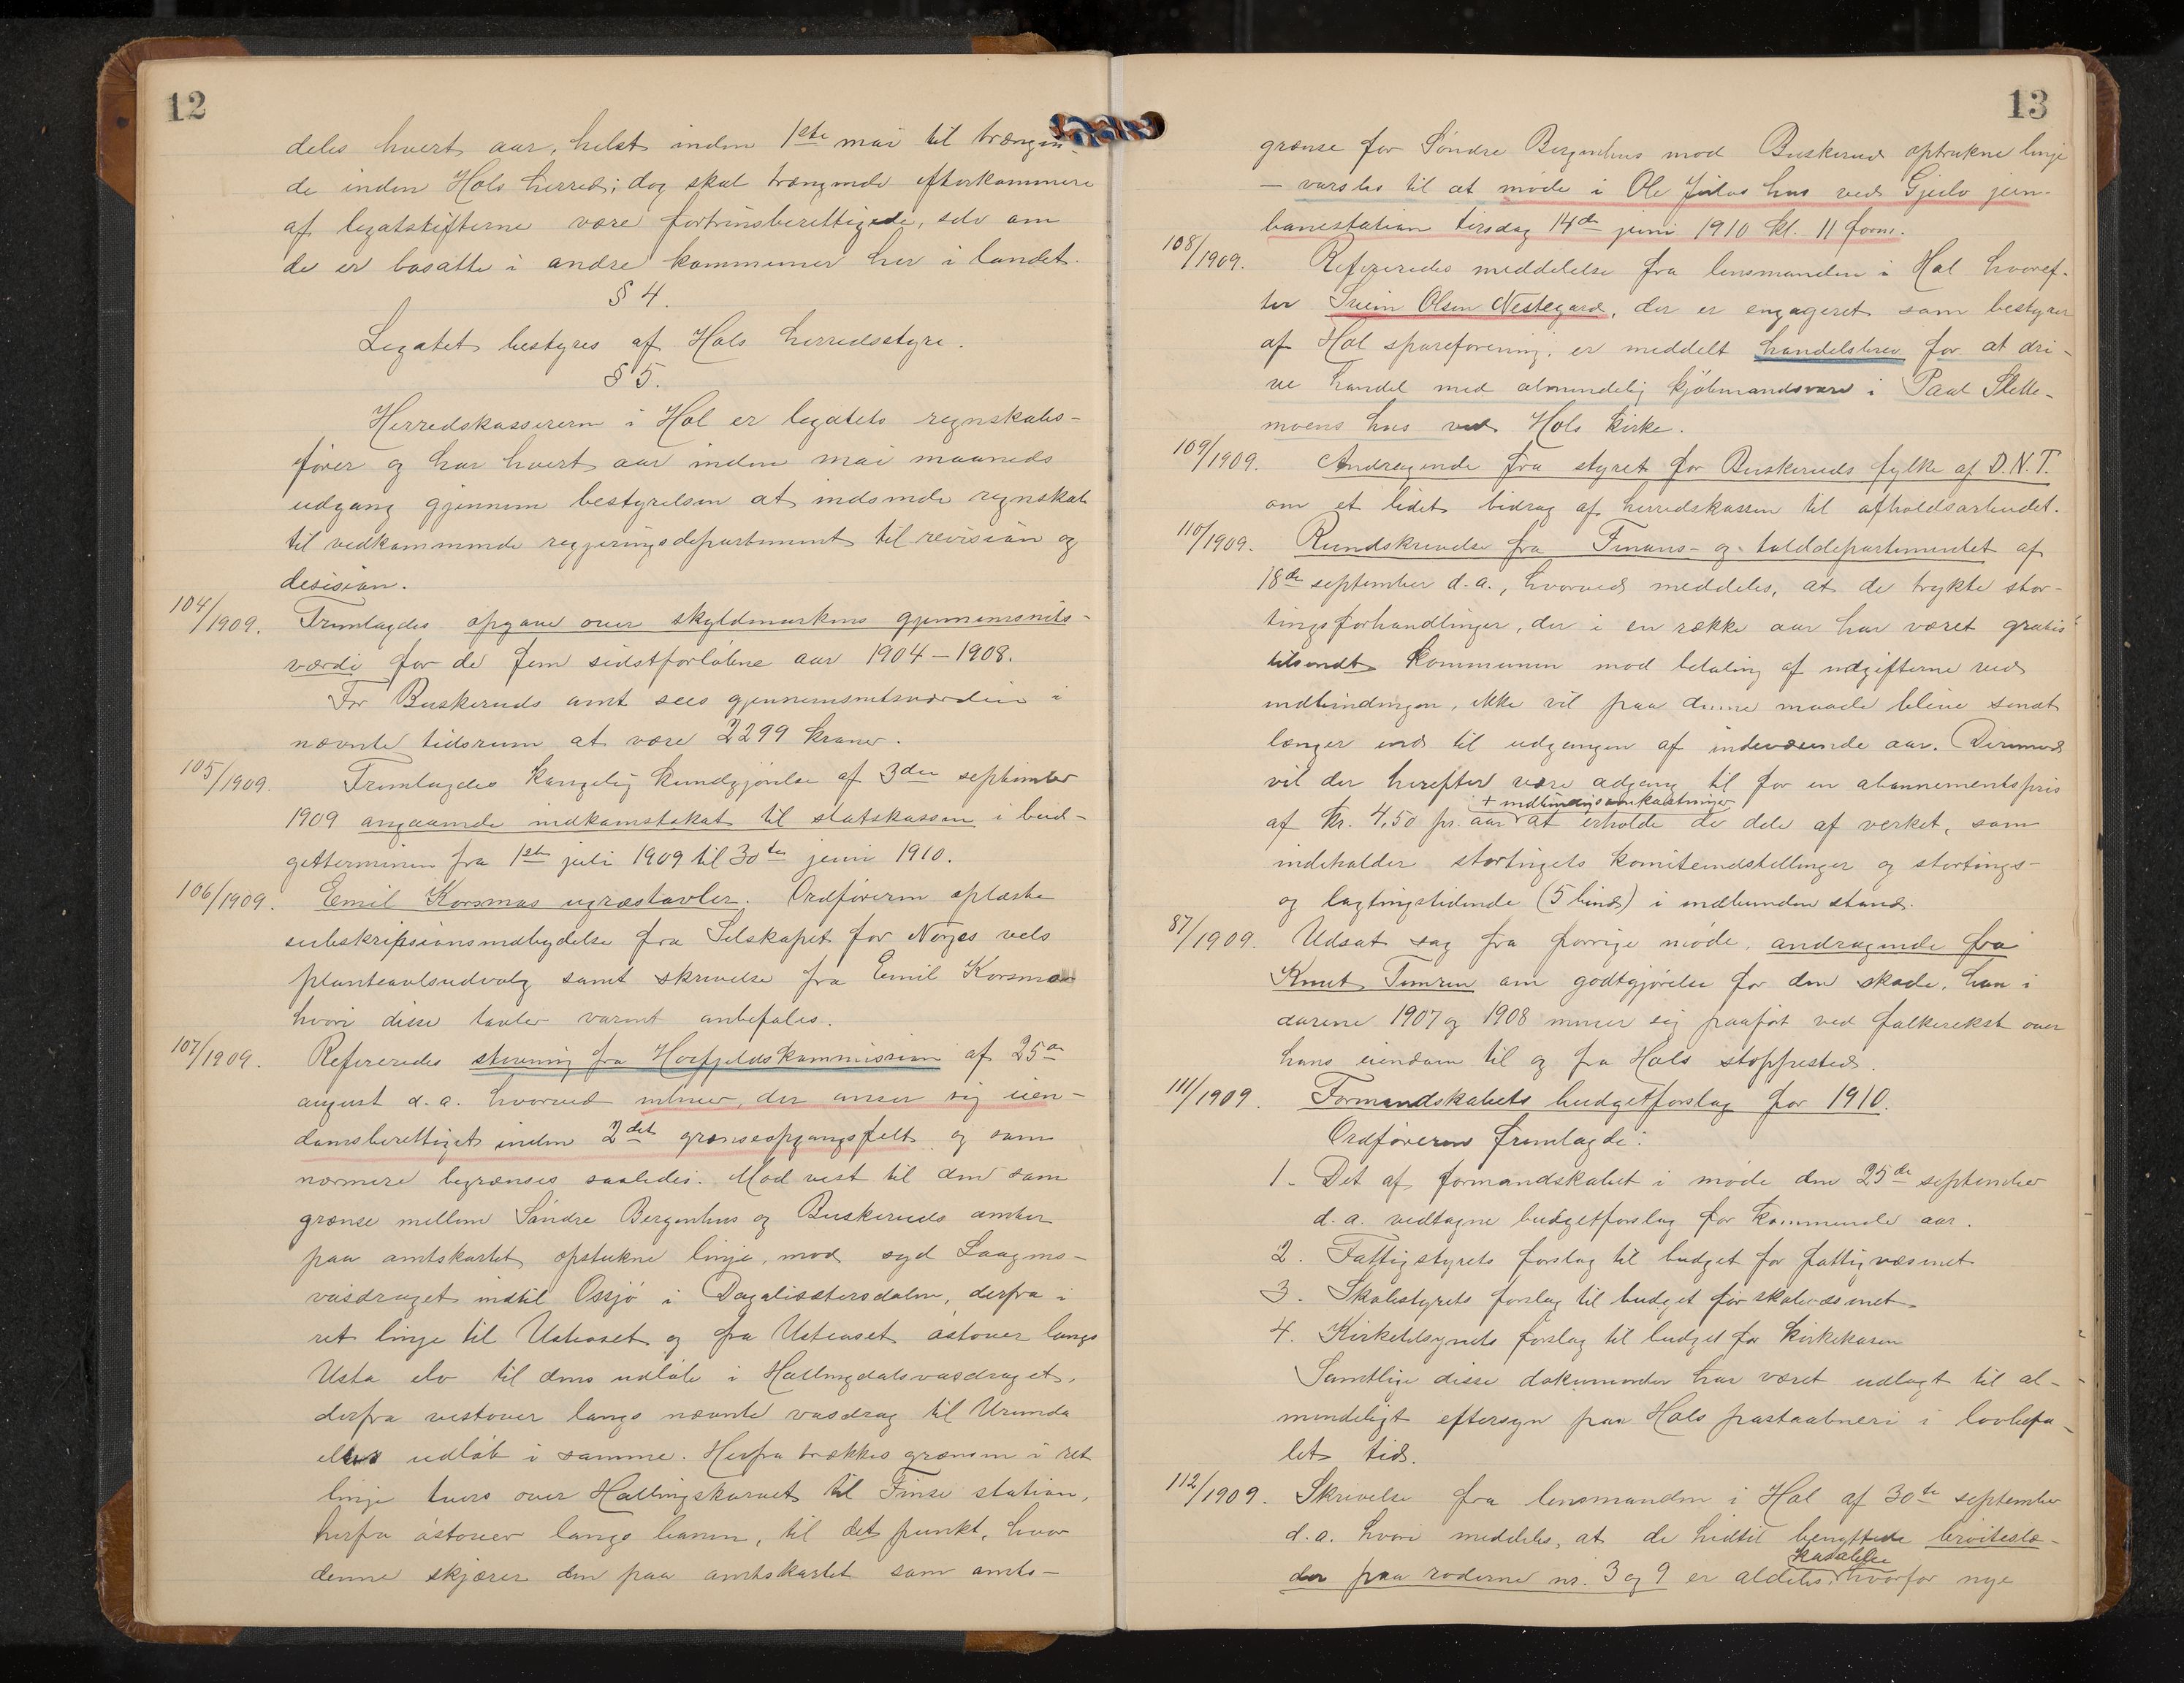 12
deles hvert aar, helst inden 1ste mai til trængen-
de inden Hols herred; dog skal trængende efterkommere
af legatstifterne være fortrinsberettigede, selv om
de er bosatte i andre kommuner her i landet.
§ 4.
Legatet bestyres af Hols herredsstyre.
§ 5.
Herredskassereren i Hol er legatets regnskabs-
fører og har hvert aar inden mai maaneds
udgang gjennem bestyrelsen at indsende regnskab
til vedkommende regjeringsdepartement til revision og
desision.
104/1909. Fremlagdes opgave over skyldmarkens gjennemsnits-
værdi for de fem sidstforløbne aar 1904–1908.
For Buskeruds amt sees gjennemsnitsværdien i
nævnte tidsrum at være 2299 kroner.
105/1909. Fremlagdes kongelig kundgjørelse af 3die september
1909 angaaende indkomstskat til statskassen i bud-
getterminen fra 1ste juli 1909 til 30te juni 1910.
106/1909. Emil Korsmos ugræstavler. Ordføreren oplæste
subskripsionsindbydelse fra Selskapet for Norges vels
planteavlsudvalg samt skrivelse fra Emil Korsmo
hvori disse tavler varmt anbefales.
107/1909. Refereredes stevning fra Høifjeldskommissionen af 25de
august d.a. hvorved enhver, der anser sig eien-
domsberettiget inden 2det grænseopgangsfelt og som
nærmere begrænses saaledes: Mod vest til den som
grænse mellem Søndre Bergenhus og Buskeruds amter
paa amtskartet optrukne linje, mod syd Laagens-
vasdraget indtil Ossjø i Dagalisætersdalen, derfra i
ret linje til Ustaoset og fra Ustaoset østover langs
Usta elv til dens udløb i Hallingdalsvasdraget,
derfra vestover langs nævnte vasdrag til Urunda
elvs udløb i samme. Herfra trækkes grænsen i ret
linje tvers over Hallingskarvet til Finse station,
herfra østover langs banen, til det punkt, hvor
denne skjærer den paa amtskartet som amts-
13
grænse for Søndre Bergenhus mod Buskerud optrukne linje
– varsles til at møde i Ole Jelas hus ved Gjeilo jern-
banestation tirsdag 14de juni 1910 kl. 11 form.
108/1909. Refereredes meddelelse fra lensmanden i Hol hvoref-
ter Svein Olsen Nestegard, der er engageret som bestyrer
af Hol spareforening, er meddelt handelsbrev for at dri-
ve handel med almindelig kjøbmandsvare i Paal Slette-
moens hus ved Hols kirke.
109/1909. Andragende fra styret for Buskeruds fylke af D.N.T.
om et lidet bidrag af herredskassen til afholdsarbeidet.
110/1909. Rundskrivelse fra Finans- og tolddepartementet af
18de september d.a., hvorved meddeles, at de trykte stor-
tingsforhandlinger, der i en række aar har været gratis
tilsendt kommunen mod betaling af udgifterne ved
indbindingen, ikke vil paa denne maade blive sendt
længer end til udgangen af indeværende aar. Derimod
vil der herefter være adgang til for en abonnementspris
+ indbindingsomkostninger
af kr. 4,50 pr. aar at erholde de dele af verket, som
indeholder stortingets komiteindstillinger og stortings-
og lagtingstidende (5 bind) i indbunden stand.
87/1909. Udsat sag fra forrige møde, andragende fra
Knut Tumren om godtgjørelse for den skade, han i
aarene 1907 og 1908 mener sig paaført ved folkerekst over
hans eiendom til og fra Hols stoppested.
111/1909. Formandskabets budgetforslag for 1910.
Ordføreren fremlagde:
1. Det af formandskabet i møde den 25de september
d.a. vedtagne budgetforslag for kommende aar.
2. Fattigstyrets forslag til budget for fattigvæsenet
3. Skolestyrets forslag til budget for skolevæsenet
4. Kirketilsynets forslag til budget for kirkekassen
Samtlige disse dokumenter har været udlagt til al-
mindeligt eftersyn paa Hols postaabneri i lovbefa-
let tid.
112/1909. Skrivelse fra lensmanden i Hol af 30te september
d.a. hvori meddeles, at de hidtil benyttede brøiteslæ-
kasable
der paa roderne nr. 3 og 9 er aldeles hvorfor nye